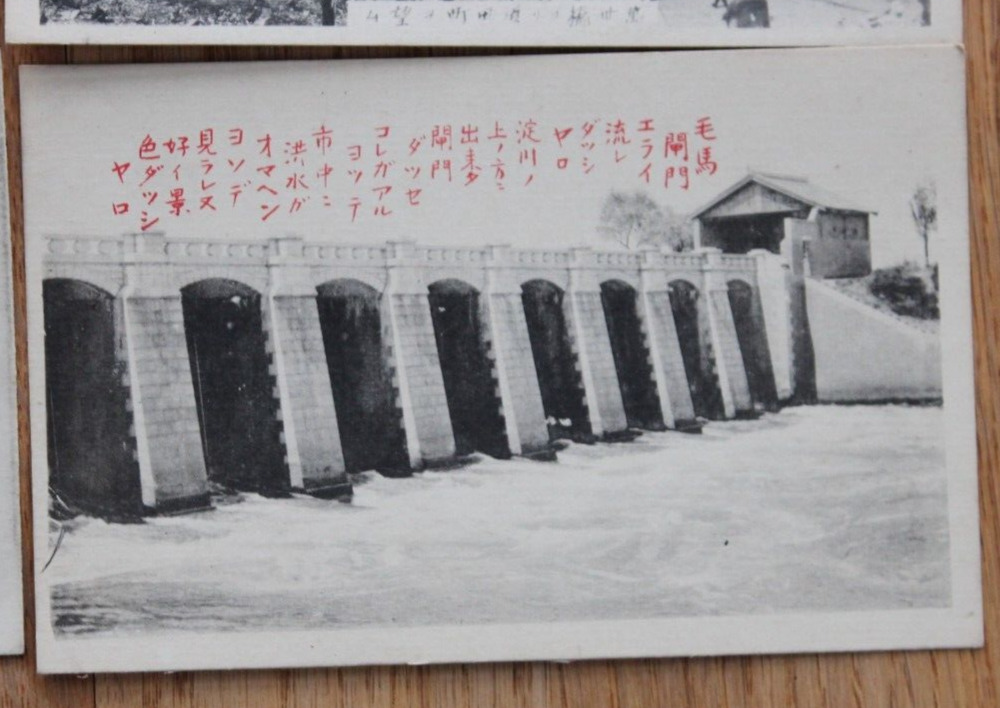 毛馬
閘門
エライ
流レ
ダツシ
ヤロ
淀川ノ
上ノ方ニ
出来タ
閘門
ダツセ
コレガアル
ヨツテ
市中ニ
洪水ガ
オマヘン
ヨソデ
見ラレヌ
好イ景
色ダツシ
ヤロ